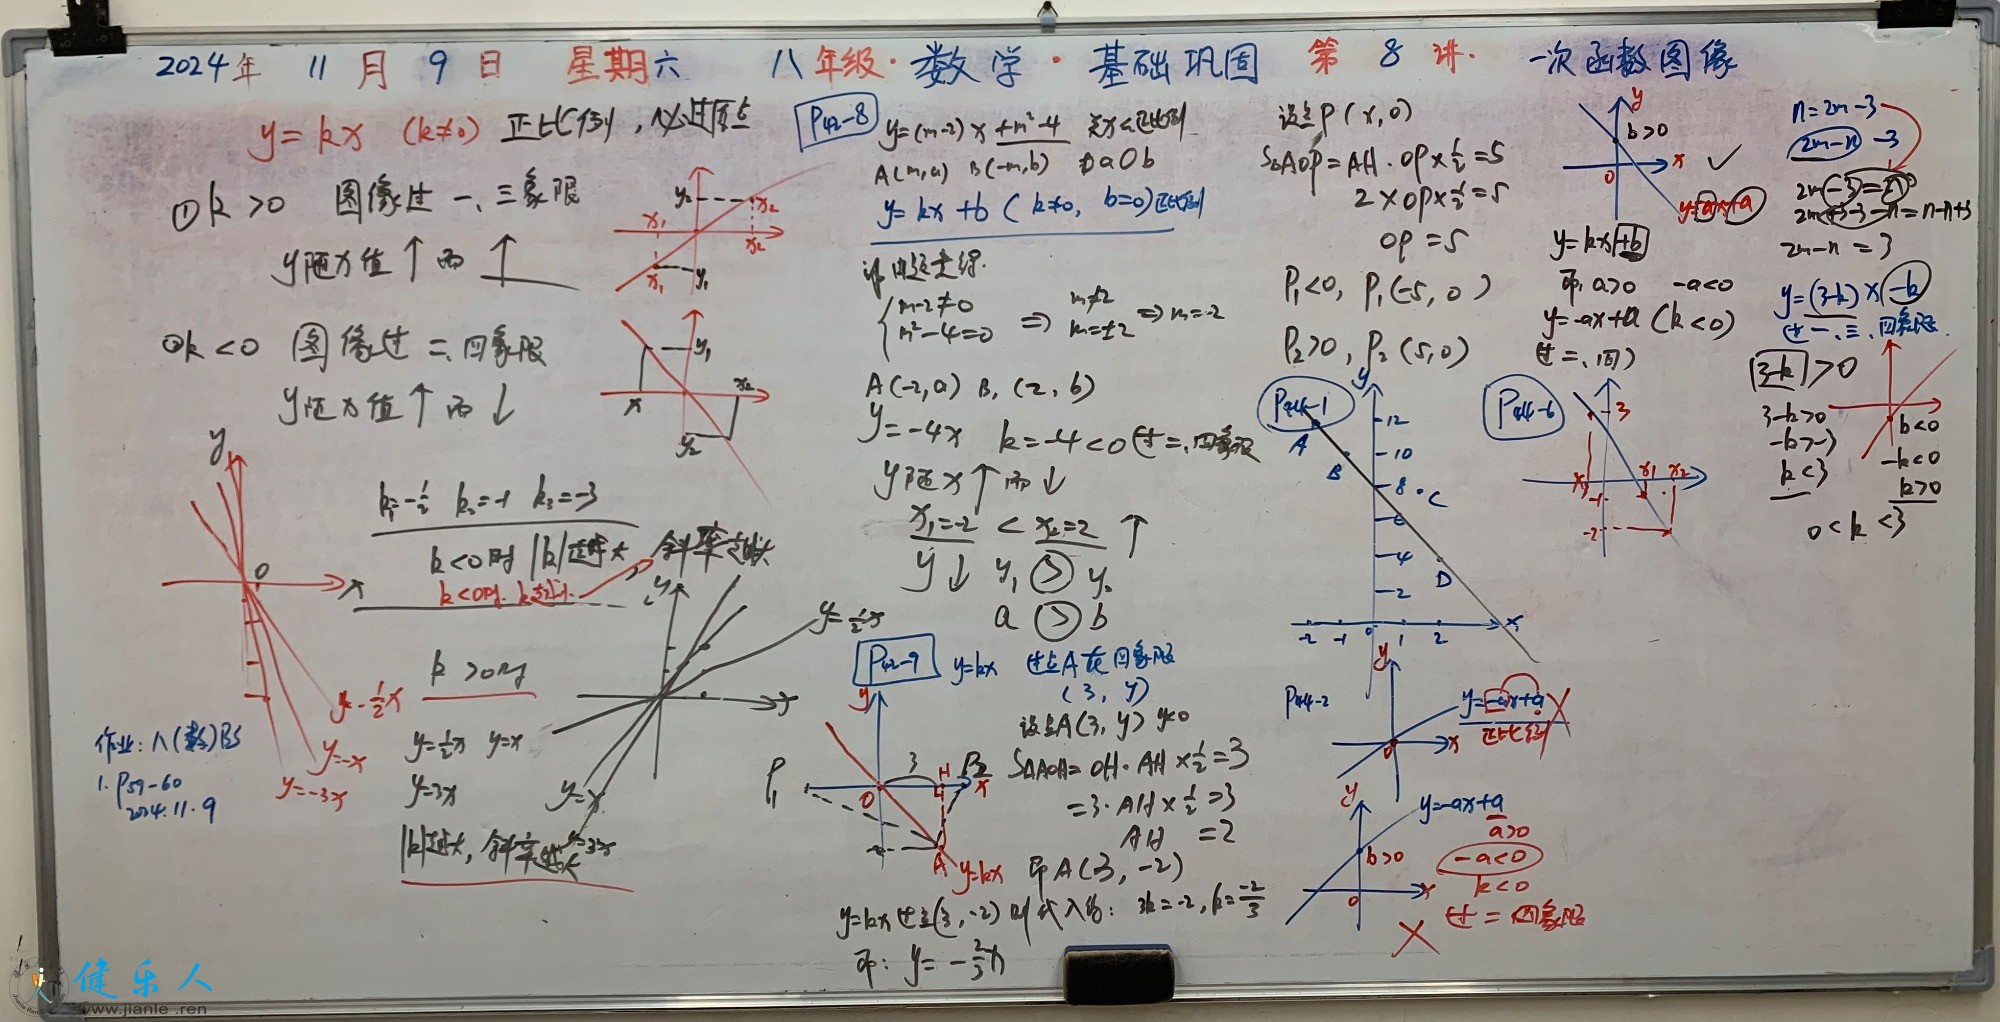 2024年 11月 9日 星期六 八年级·数学·基础巩固 第 8 讲. 一次函数图像
y=kx (k≠0) 正比例,必过原点
①k>0 图像过一、三象限
y随x值↑而↑
②k<0 图像过二、四象限
y随x值↑而↓
y₂
x₂
x₁
x₂
x₁
y₁
y₁
x₂
y₂
y
0
x
k₁=-1/2 k₂=-1 k₃=-3
k<0时 |k|越大 斜率越大
y=-1/2x
y=-x
y=-3x
k>0时
y=1/2x y=x
y=3x
|k|越大,斜率越大
y
x
y=1/2x
y=x
y=3x
作业: 八(数)BS
1. P59-60
2024.11.9
P42-8
y=(m-2)x+m²-4 关于x正比例
A(m,a) B(-m,b) aOb
y=kx+b (k≠0, b=0)正比例
m-2≠0
m²-4=0
⇒ m≠2
m=±2 ⇒m=-2
A(-2,a) B,(2,b)
y=-4x k=-4<0过二、四象限
y随x↑而↓
x₁=-2 < x₂=2 ↑
y↓ y₁>y₂
a>b
P42-9 y=kx 过点A在四象限
(3, y)
设点A(3,y) y<0
S△AOH=OH·AH×1/2=3
=3·AH×1/2=3
AH=2
即A(3,-2)
y=kx过点(3,-2)时代入得: 3k=-2,k=-2/3
即: y=-2/3x
y
3
H
P₂
x
0
P₁
A
y=kx
设点P(x,0)
S△AOP=AH·OP×1/2=5
2×OP×1/2=5
OP=5
P₁<0, P₁(-5,0)
P₂>0, P₂(5,0)
P44-1
y
12
10
8
6
4
2
A
B
C
D
-2 -1 0 1 2 x
P44-2
y
0
x
y=-ax+a
正比例
y
y=-ax+a
a>0
b>0
-a<0
k<0
0
x
过二四象限
y
b>0
x
0
y=-ax+a
y=kx+b
即, a>0 -a<0
y=-ax+a (k<0)
过二、四
P44-6
3
x₃
x₁
x₂
-1
-2
n=2m-3
2m-n-3
2m-n=3
y=(3-k)x-k
过一、三、四象限
3-k>0
3-k>0
-k>-3
k<3
b<0
-k<0
k>0
0<k<3
健乐人
www.jianle.ren